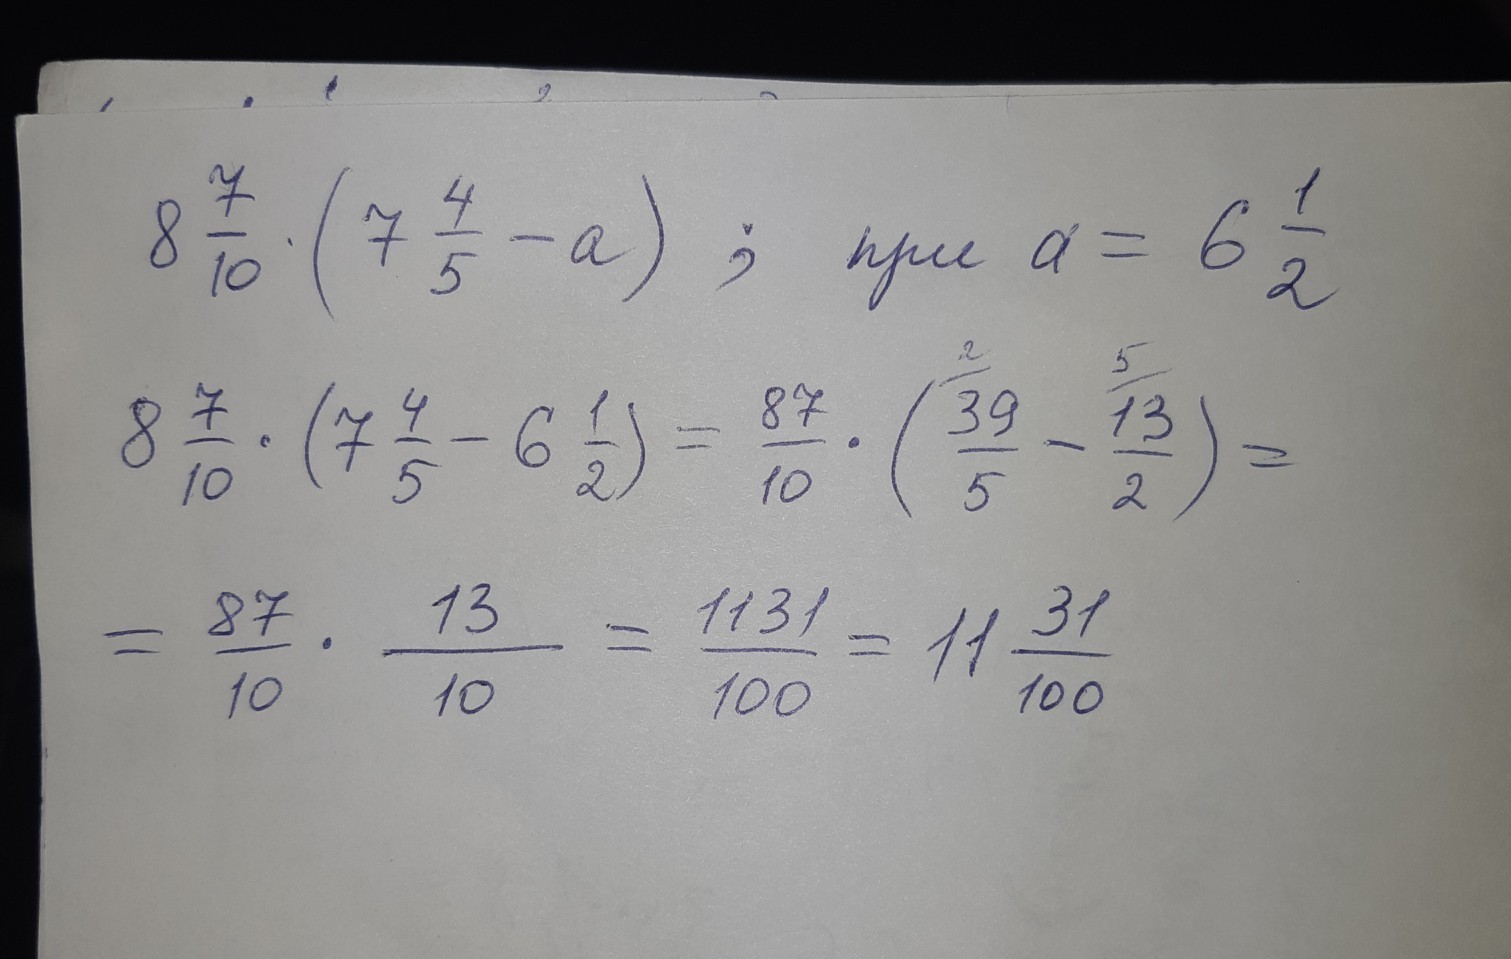 8 7/10 · (7 4/5 - a) ; при a = 6 1/2
8 7/10 · (7 4/5 - 6 1/2) = 87/10 · (39/5 - 13/2) =
= 87/10 · 13/10 = 1131/100 = 11 31/100